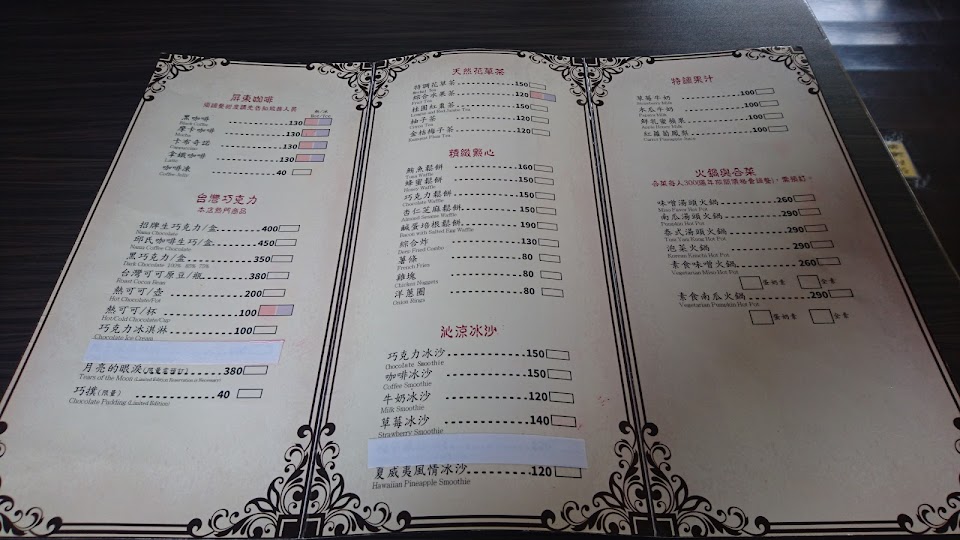 屏東咖啡
黑咖啡 130
Black Coffee
摩卡咖啡 130
Mocha
卡布奇諾 130
Cappuccino
拿鐵咖啡 130
Latte
咖啡凍 40
Coffee Jelly
台灣巧克力
本店熱門商品
招牌生巧克力/盒 400
Nama Chocolate
邱氏咖啡生巧/盒 450
Nama Coffee Chocolate
黑巧克力/盒 350
Dark Chocolate
台灣可可原豆/瓶 380
Roast Cocoa Bean
熱可可/壺 200
Hot Chocolate/Pot
熱可可/杯 100
Hot/Cold Chocolate/Cup
巧克力冰淇淋 100
Chocolate Ice Cream
月亮的眼淚 380
Tears of the Moon (Limited Edition Reservation is Necessary)
巧撲(限量) 40
Chocolate Pudding (Limited Edition)
天然花草茶
特調花草茶 150
Herbal Tea
綜合水果茶 120
Fruit Tea
桂圓紅棗茶 150
柚子茶 120
金桔梅子茶 120
精緻點心
鮪魚鬆餅 160
Tuna Waffle
蜂蜜鬆餅 150
Honey Waffle
巧克力鬆餅 150
Chocolate Waffle
杏仁芝麻鬆餅 150
Almond Sesame Waffle
鹹蛋培根鬆餅 190
Bacon with Salted Egg Waffle
綜合炸 130
Deep Fried Combo
薯條 80
French Fries
雞塊 80
Chicken Nuggets
洋蔥圈 80
Onion Rings
沁涼冰沙
巧克力冰沙 150
Chocolate Smoothie
咖啡冰沙 150
Coffee Smoothie
牛奶冰沙 120
Milk Smoothie
草莓冰沙 140
Strawberry Smoothie
夏威夷風情冰沙 120
Hawaiian Pineapple Smoothie
特調果汁
草莓牛奶 100
Strawberry Milk
木瓜牛奶 100
Papaya Milk
鮮乳蜜蘋果 100
Apple Honey Milk
紅蘿蔔鳳梨 100
火鍋與合菜
味噌湯頭火鍋 260
Miso Flavor Hot Pot
南瓜湯頭火鍋 290
Pumpkin Hot Pot
泰式湯頭火鍋 290
Tom Yum Kung Hot Pot
泡菜火鍋 290
Korean Kimchi Hot Pot
素食味噌火鍋 260
Vegetarian Miso Hot Pot
蛋奶素 全素
素食南瓜火鍋 290
Vegetarian Pumpkin Hot Pot
蛋奶素 全素